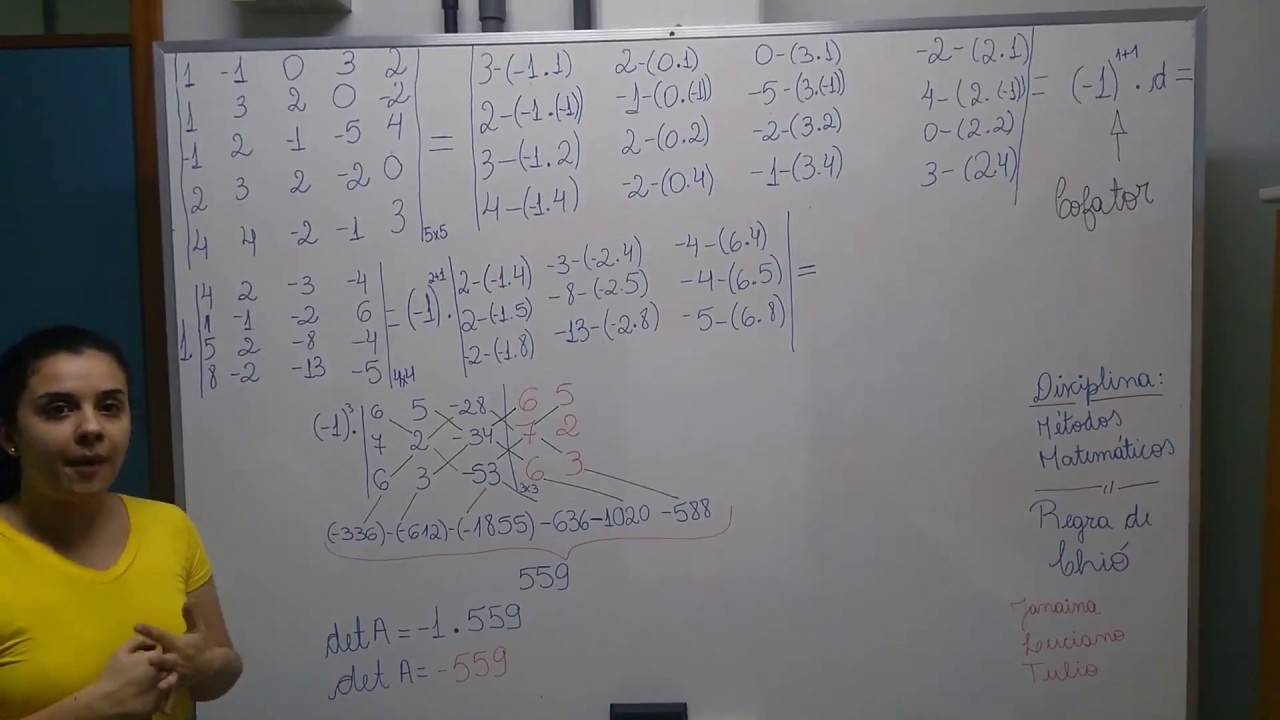 1 -1 0 3 2
1 3 2 0 -2
-1 2 -1 -5 4
2 3 2 -2 0
4 4 -2 -1 3 5x5
=
3-(-1.1) 2-(0.1) 0-(3.1) -2-(2.1)
2-(-1.(-1)) -1-(0.(-1)) -5-(3.(-1)) 4-(2.(-1))
3-(-1.2) 2-(0.2) -2-(3.2) 0-(2.2)
4-(-1.4) -2-(0.4) -1-(3.4) 3-(2.4)
= (-1)¹⁺¹ . d =
↑
Cofator
1.
4 2 -3 -4
1 -1 -2 6
5 2 -8 -4
8 -2 -13 -5 4x4
= (-1)²⁺¹ .
2-(-1.4) -3-(-2.4) -4-(6.4)
2-(-1.5) -8-(-2.5) -4-(6.5)
-2-(-1.8) -13-(-2.8) -5-(6.8)
=
(-1)³ .
6 5 -28 6 5
7 2 -34 7 2
6 3 -53 6 3
3x3
(-336)-(-612)-(-1855) -636-1020 -588
559
det A = -1 . 559
det A = -559
Disciplina:
Métodos
Matemáticos
Regra de
Chió
Janaina
Luciano
Tulio